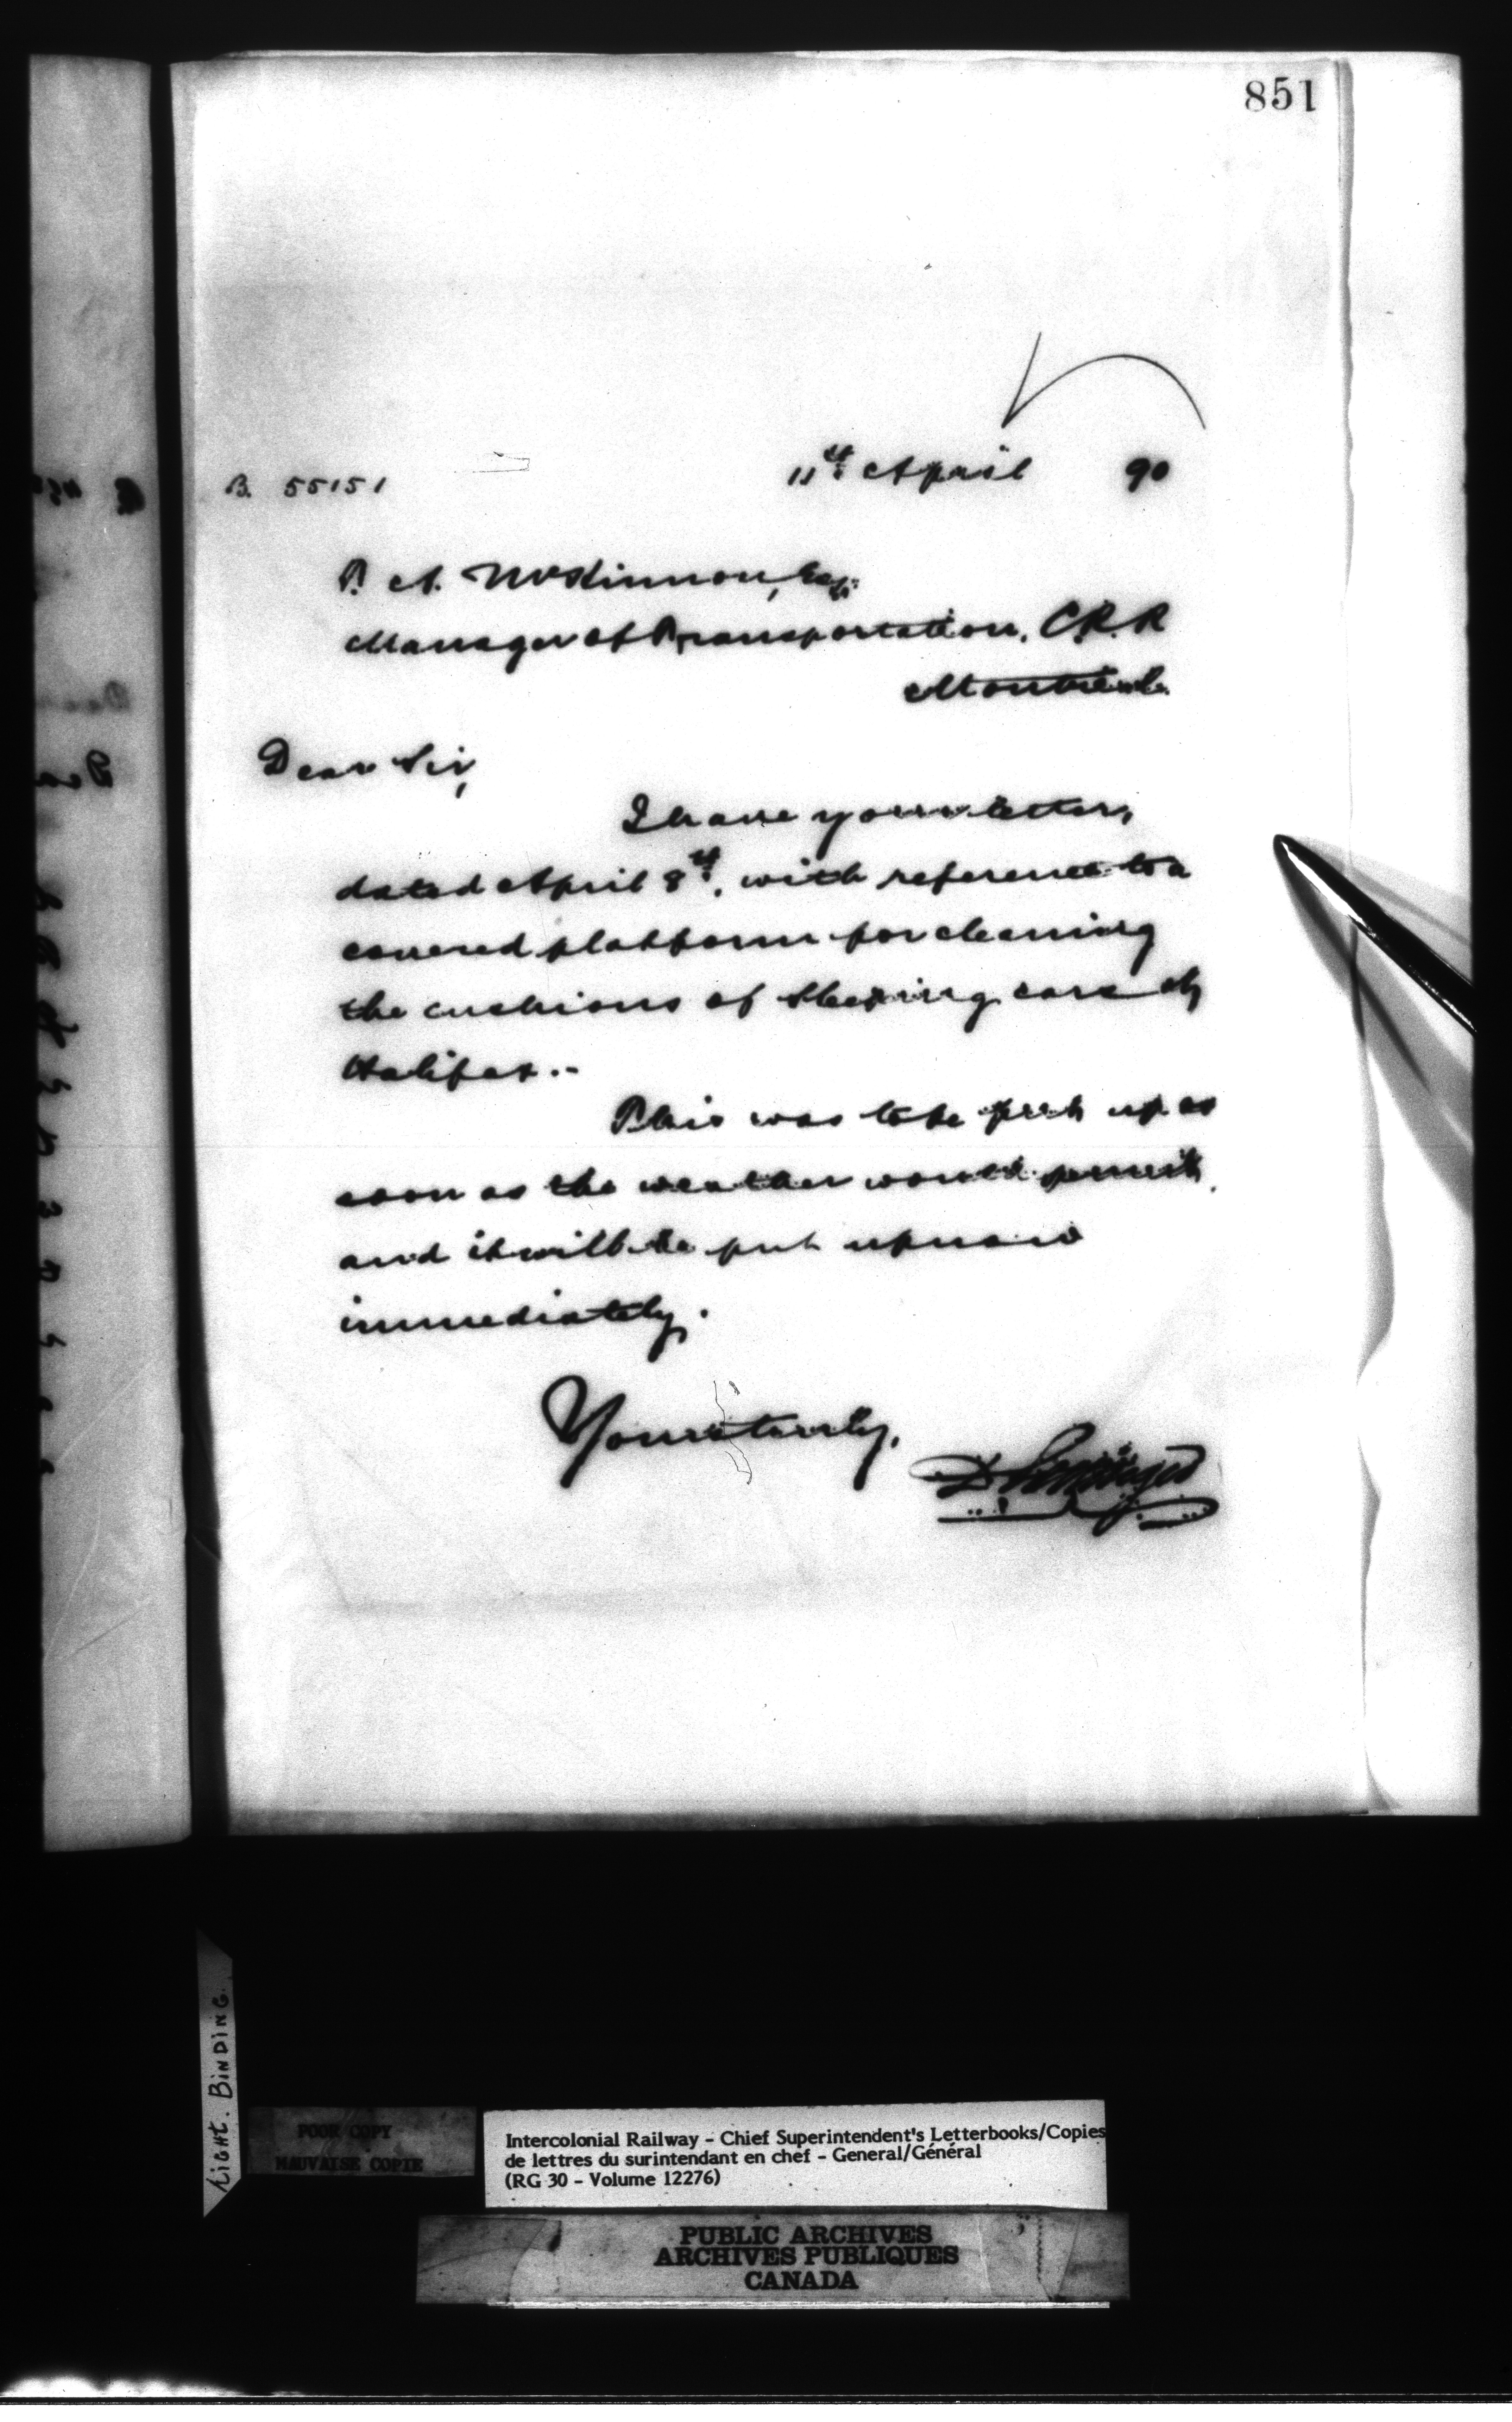 851
B. 55151
11th April 90
P. A. McKinnon, Esq.
Manager of Transportation, C.P.R
Montreal.
Dear Sir,
I have your letter,
dated April 8th, with reference to a
covered platform for cleaning
the cushions of sleeping cars at
Halifax.-
This was to be put up as
soon as the weather would permit,
and it will be put up now
immediately.
Yours truly,
D Pottinger
LIGHT. BINDING.
POOR COPY
MAUVAISE COPIE
Intercolonial Railway - Chief Superintendent's Letterbooks/Copies
de lettres du surintendant en chef - General/Général
(RG 30 - Volume 12276)
PUBLIC ARCHIVES
ARCHIVES PUBLIQUES
CANADA